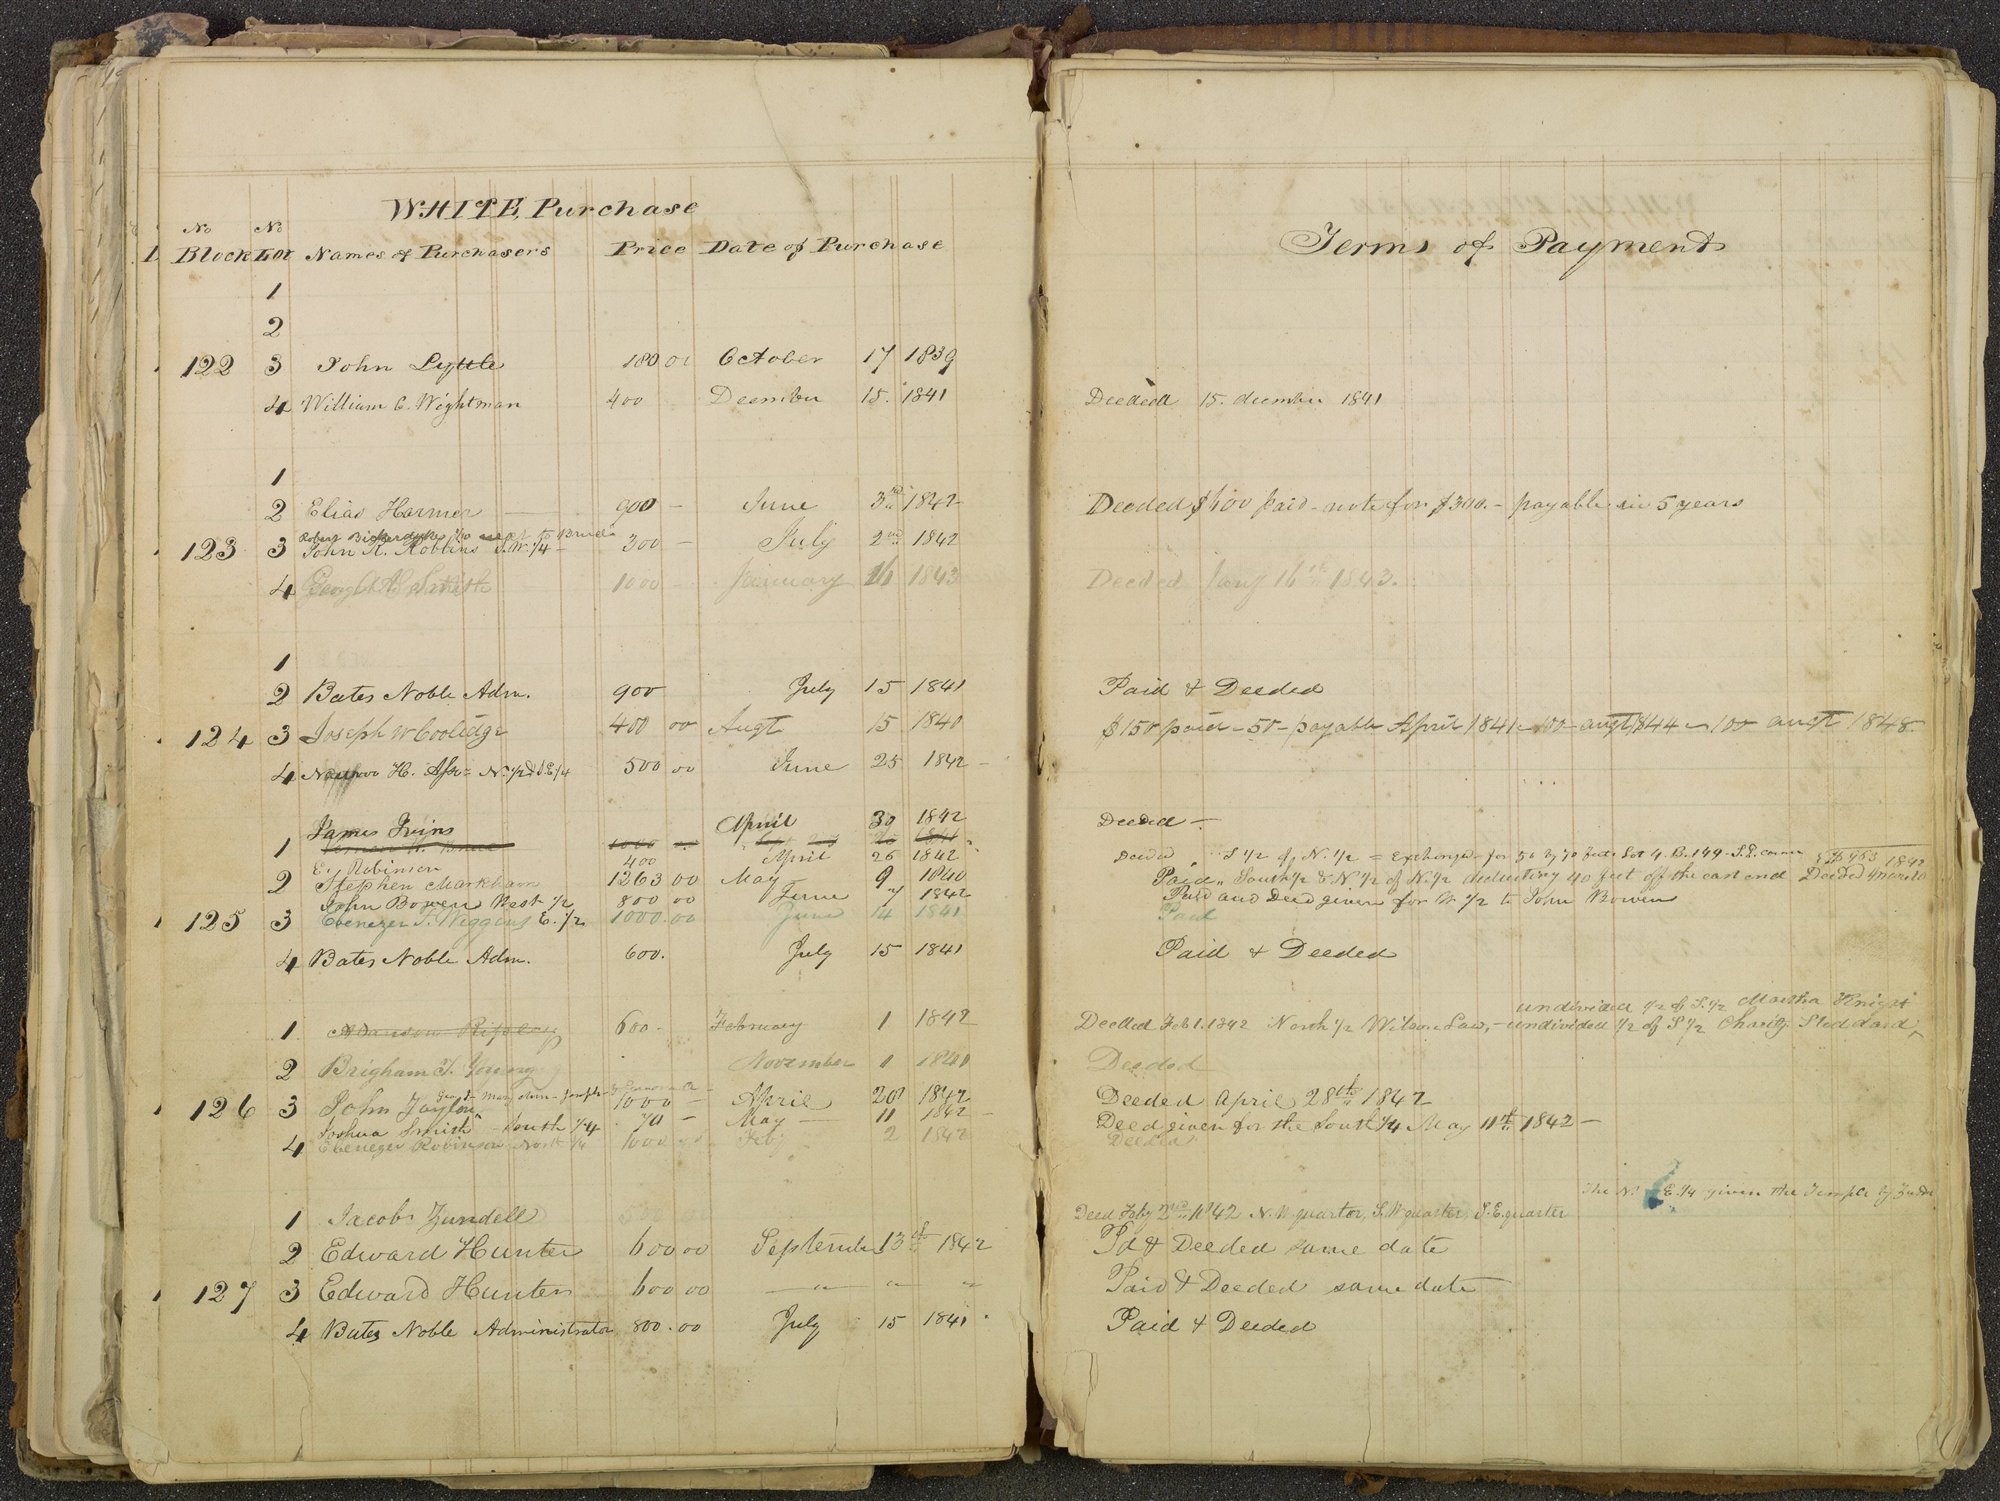 WHITE, Purchase
No No
Block Lot Names of Purchasers Price Date of Purchase
Terms of Payment
1
2
122 3 John Lyttle 180 01 October 17 1839
4 William C. Wightman 400 Deember 15. 1841 Deeded 15. decmber 1841
1
2 Elias Harmer 900 - June 3rd 1842 - Deeded $600 paid - note for $300. - payable in 5 years
Robert Bickerdyke 1/10 next to
123 3 John R. Robbins S.W. 1/4 - 300 - July 2nd 1842
4 George A Smith 1000 January 16 1843 Deeded Jany 16th 1843.
1
2 Bates Noble Adm. 900 July 15 1841 Paid & Deeded
124 3 Joseph W Coolidge 400 00 Augt 15 1840 $150 paid - 50 - payable April 1841 - 100 - augt 1844 - 100 augt 1848
4 H. N. 1/2 & S.E. 1/4 500 00 June 25 1842 -
James Ivins April 30 1842 Deeded -
1
E. Robinson 400 April 26 1842 Deeded S 1/2 of N. 1/2 = Exchanged for 50 by 70 feet Lot 4. B. 149 - S.E. corner
2 Stephen Markham 1263 00 May 9 1840 Paid " South 1/2 & N. 1/2 of N. 1/2 deducting 40 feet off the east end Deeded
John Bowen West 1/2 800 00 June 7 1842 Paid and Deed given for W 1/2 to John Bowen
125 3 Ebenezer F. Wiggins E. 1/2 1000.00 June 14 1841 Paid
4 Bates Noble Adm. 600. July 15 1841 Paid & Deeded
undivided 1/2 of S. 1/2 Martha Knight
1 Alanson Ripley 600 - February 1 1842 Deeded Feb 1. 1842 North 1/2 Wilson Law, - undivided 1/2 of S 1/2 Charity Stoddard
2 Brigham Y. Young November 1 1840 Deeded
126 3 John Taylor 1000 - April 28 1842 Deeded April 28th 1842
Joshua Smith - South 1/4 70 - May - 11 1842 - Deed given for the South 1/4 May 11th 1842 -
4 Ebenezer Robinson North 3/4 1000 Feby 2 1842 Deeded
The N. E. 1/4 given the Temple by
1 Jacob Zundell Deed Feby 2nd 1842 N. W quarter, S. W quarter, S. E. quarter
2 Edward Hunter 600 00 September 13th 1842 Pd & Deeded same date
127 3 Edward Hunter 600 00 " " " Paid & Deeded same date
4 Bates Noble Administrator 800.00 July 15 1841 Paid & Deeded